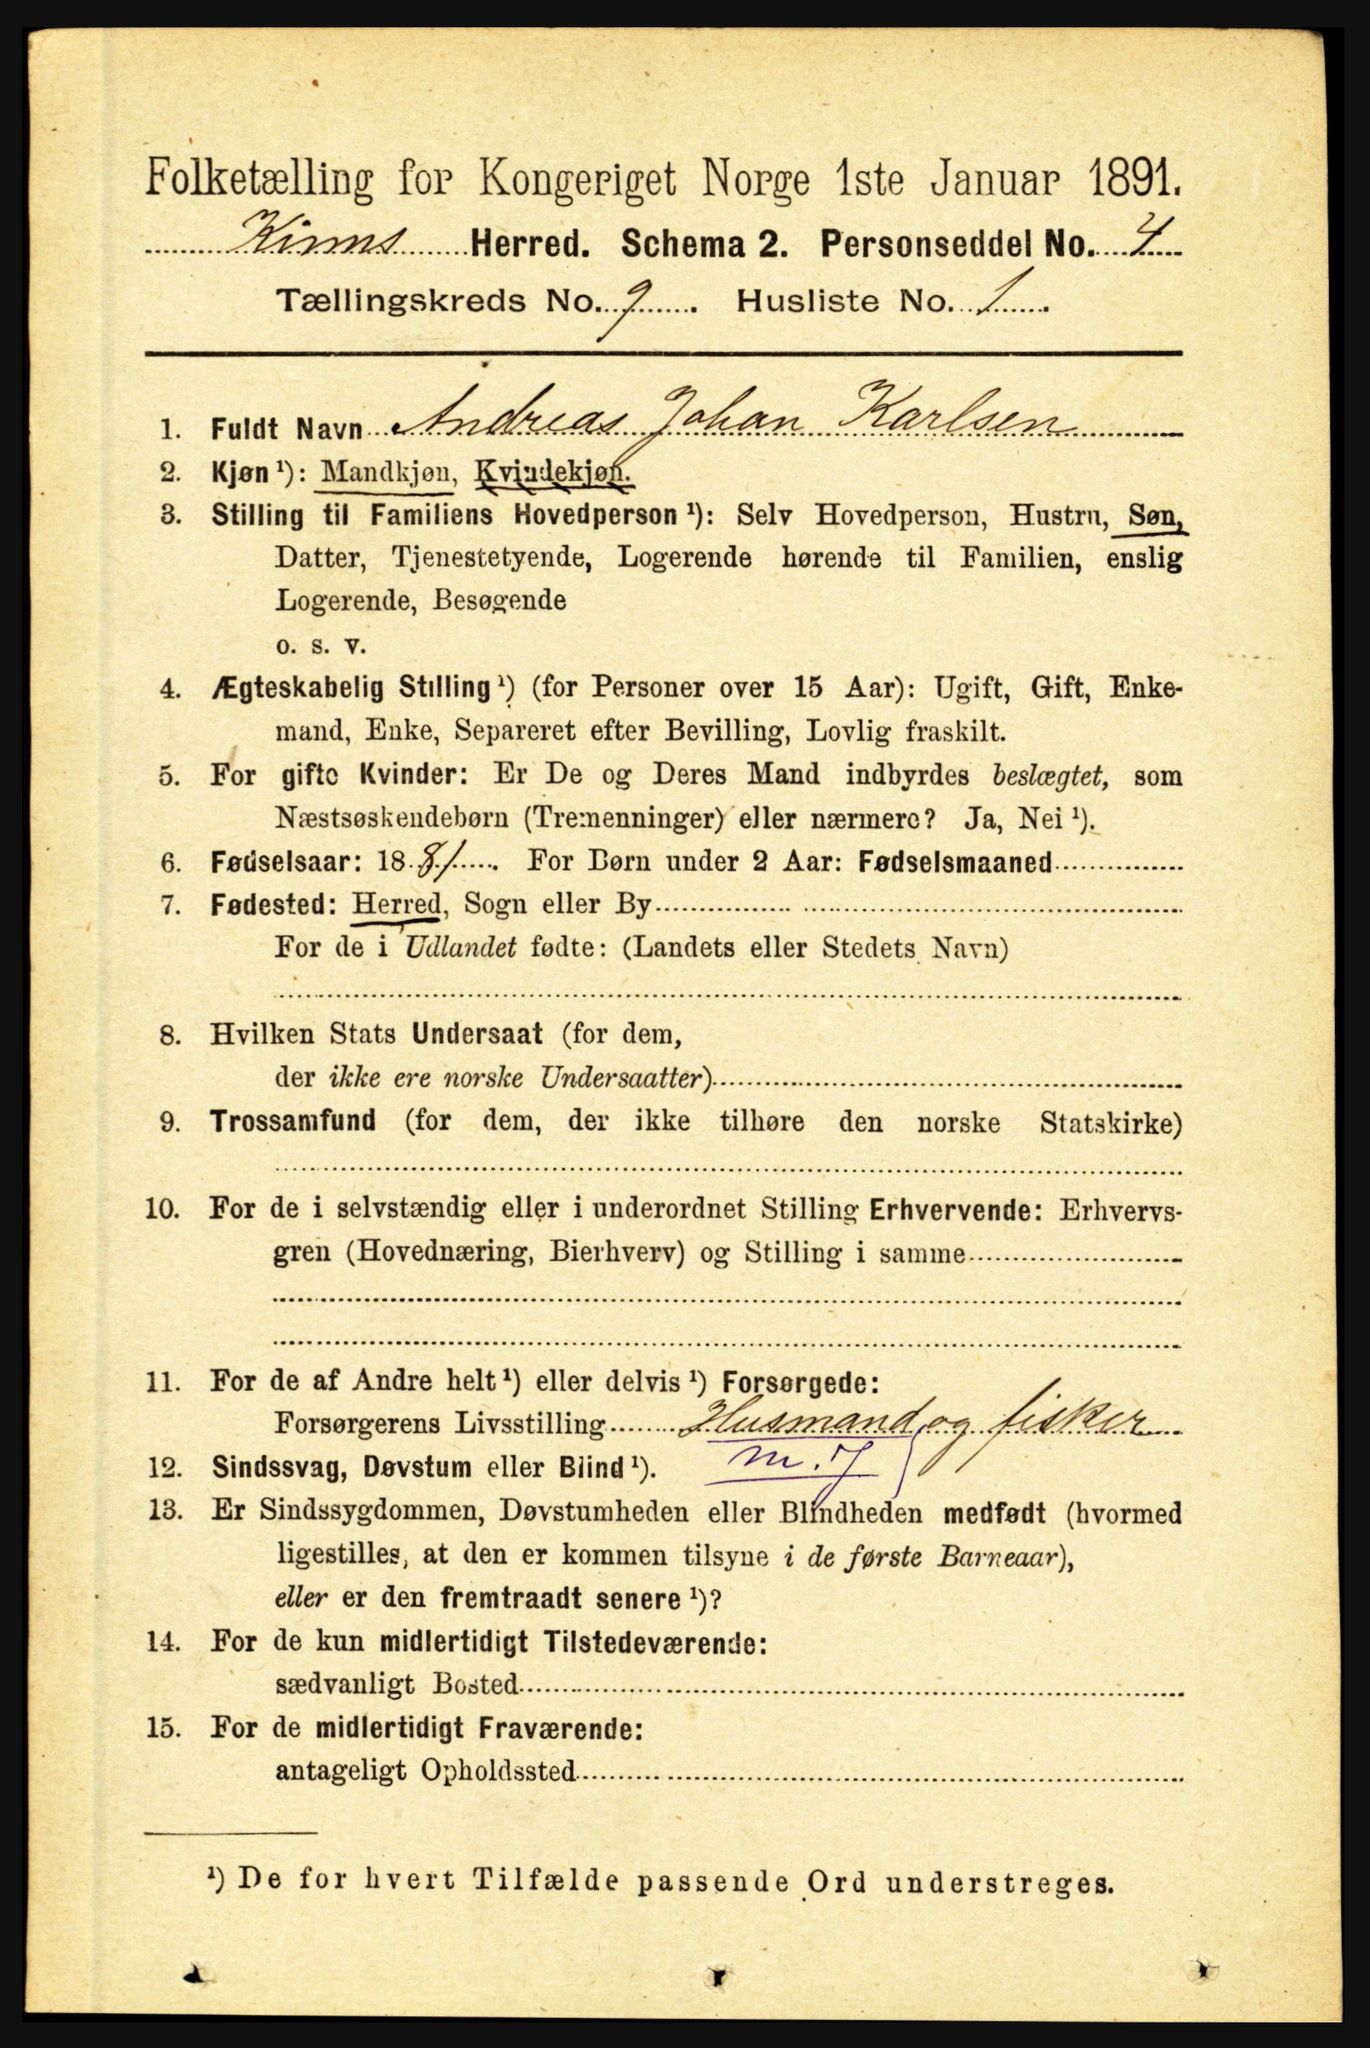 Folketælling for Kongeriget Norge 1ste Januar 1891.
Kinns Herred. Schema 2. Personseddel No. 4
Tællingskreds No. 9. Husliste No. 1.
1. Fuldt Navn Andreas Johan Karlsen
2. Kjøn ¹): Mandkjøn, Kvindekjøn.
3. Stilling til Familiens Hovedperson ¹): Selv Hovedperson, Hustru, Søn,
Datter, Tjenestetyende, Logerende hørende til Familien, enslig
Logerende, Besøgende
o. s. v.
4. Ægteskabelig Stilling ¹) (for Personer over 15 Aar): Ugift, Gift, Enke-
mand, Enke, Separeret efter Bevilling, Lovlig fraskilt.
5. For gifte Kvinder: Er De og Deres Mand indbyrdes beslægtet, som
Næstsøskendebørn (Tremenninger) eller nærmere? Ja, Nei ¹).
6. Fødselsaar: 1881. For Børn under 2 Aar: Fødselsmaaned
7. Fødested: Herred, Sogn eller By
For de i Udlandet fødte: (Landets eller Stedets Navn)
8. Hvilken Stats Undersaat (for dem,
der ikke ere norske Undersaatter)
9. Trossamfund (for dem, der ikke tilhøre den norske Statskirke)
10. For de i selvstændig eller i underordnet Stilling Erhvervende: Erhvervs-
gren (Hovednæring, Bierhverv) og Stilling i samme
11. For de af Andre helt ¹) eller delvis ¹) Forsørgede:
Forsørgerens Livsstilling Husmand og fisker
m. J
12. Sindssvag, Døvstum eller Blind ¹).
13. Er Sindssygdommen, Døvstumheden eller Blindheden medfødt (hvormed
ligestilles, at den er kommen tilsyne i de første Barneaar),
eller er den fremtraadt senere ¹)?
14. For de kun midlertidigt Tilstedeværende:
sædvanligt Bosted
15. For de midlertidigt Fraværende:
antageligt Opholdssted
¹) De for hvert Tilfælde passende Ord understreges.